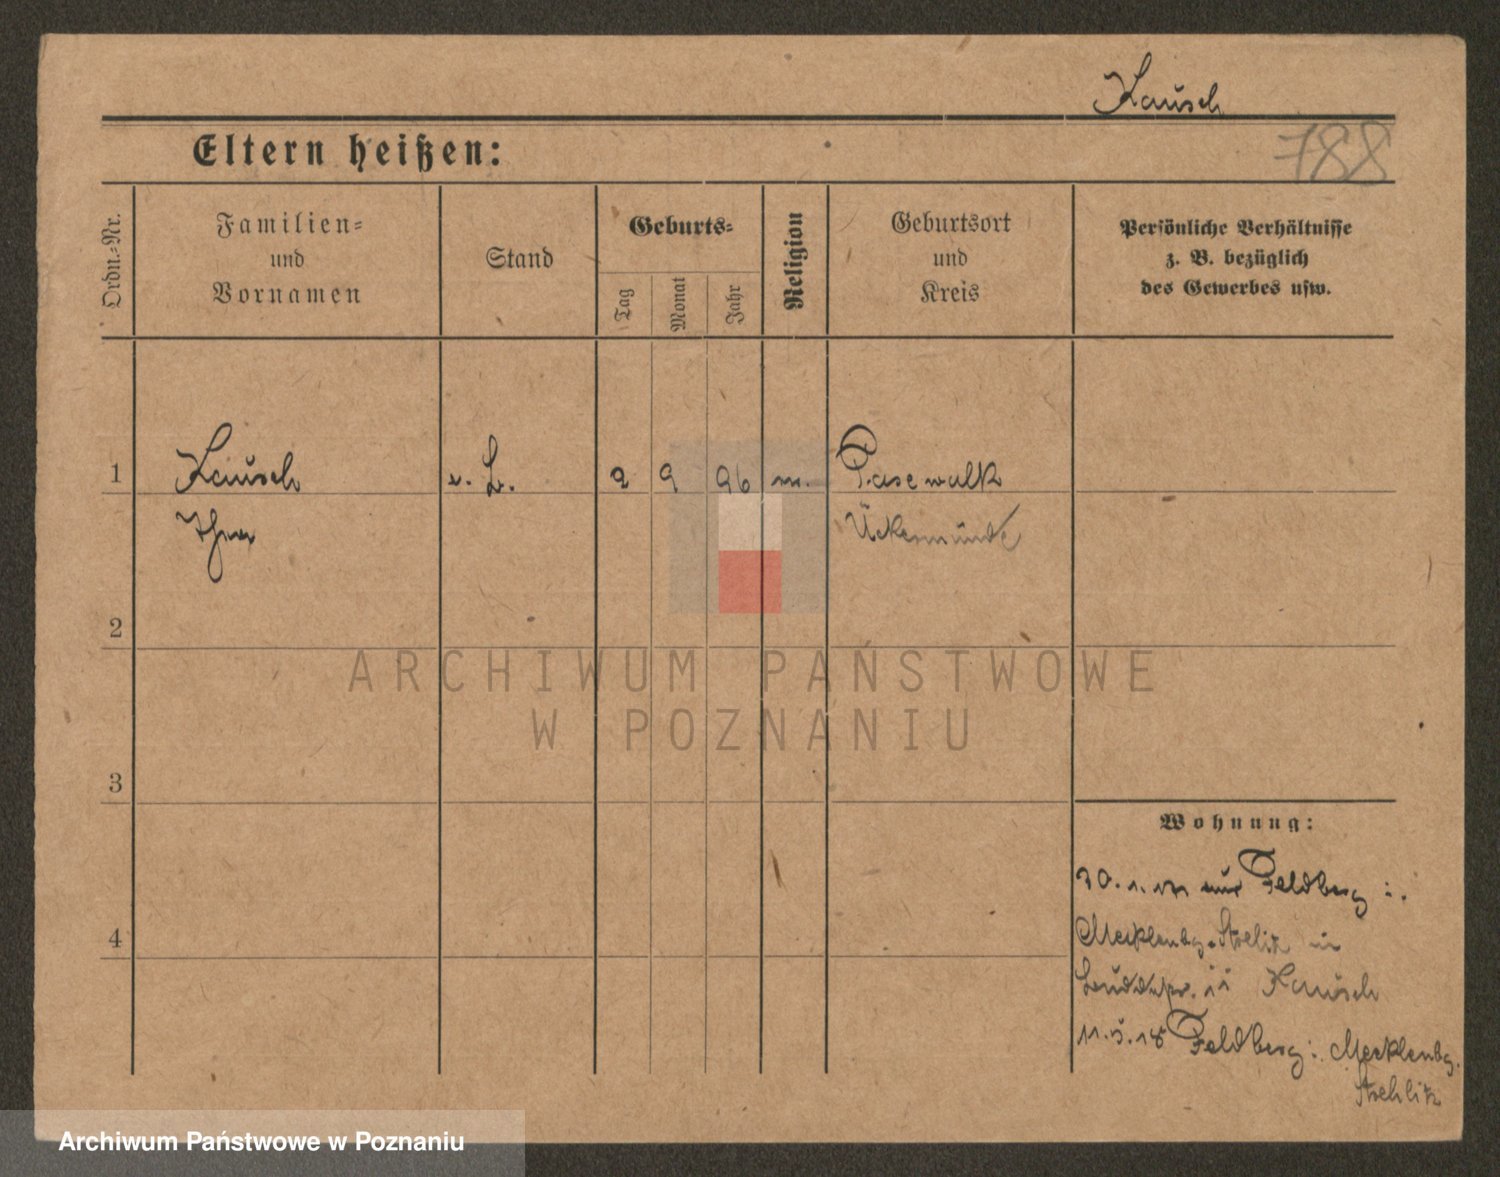 Kausch
788
Eltern heißen:
Ordn.-Nr.
Familien-
und
Vornamen
Stand
Geburts-
Tag
Monat
Jahr
Religion
Geburtsort
und
Kreis
Persönliche Verhältnisse
z. B. bezüglich
des Gewerbes usw.
1 Kausch 2 9 96 Pasewalk
Ückermünde
2
ARCHIWUM PAŃSTWOWE
W POZNANIU
3
Wohnung:
Feldberg i.
4 Mecklenbg. Strelitz in
Kausch
11.5.18 Feldberg i. Mecklenbg.
Strehlitz
Archiwum Państwowe w Poznaniu